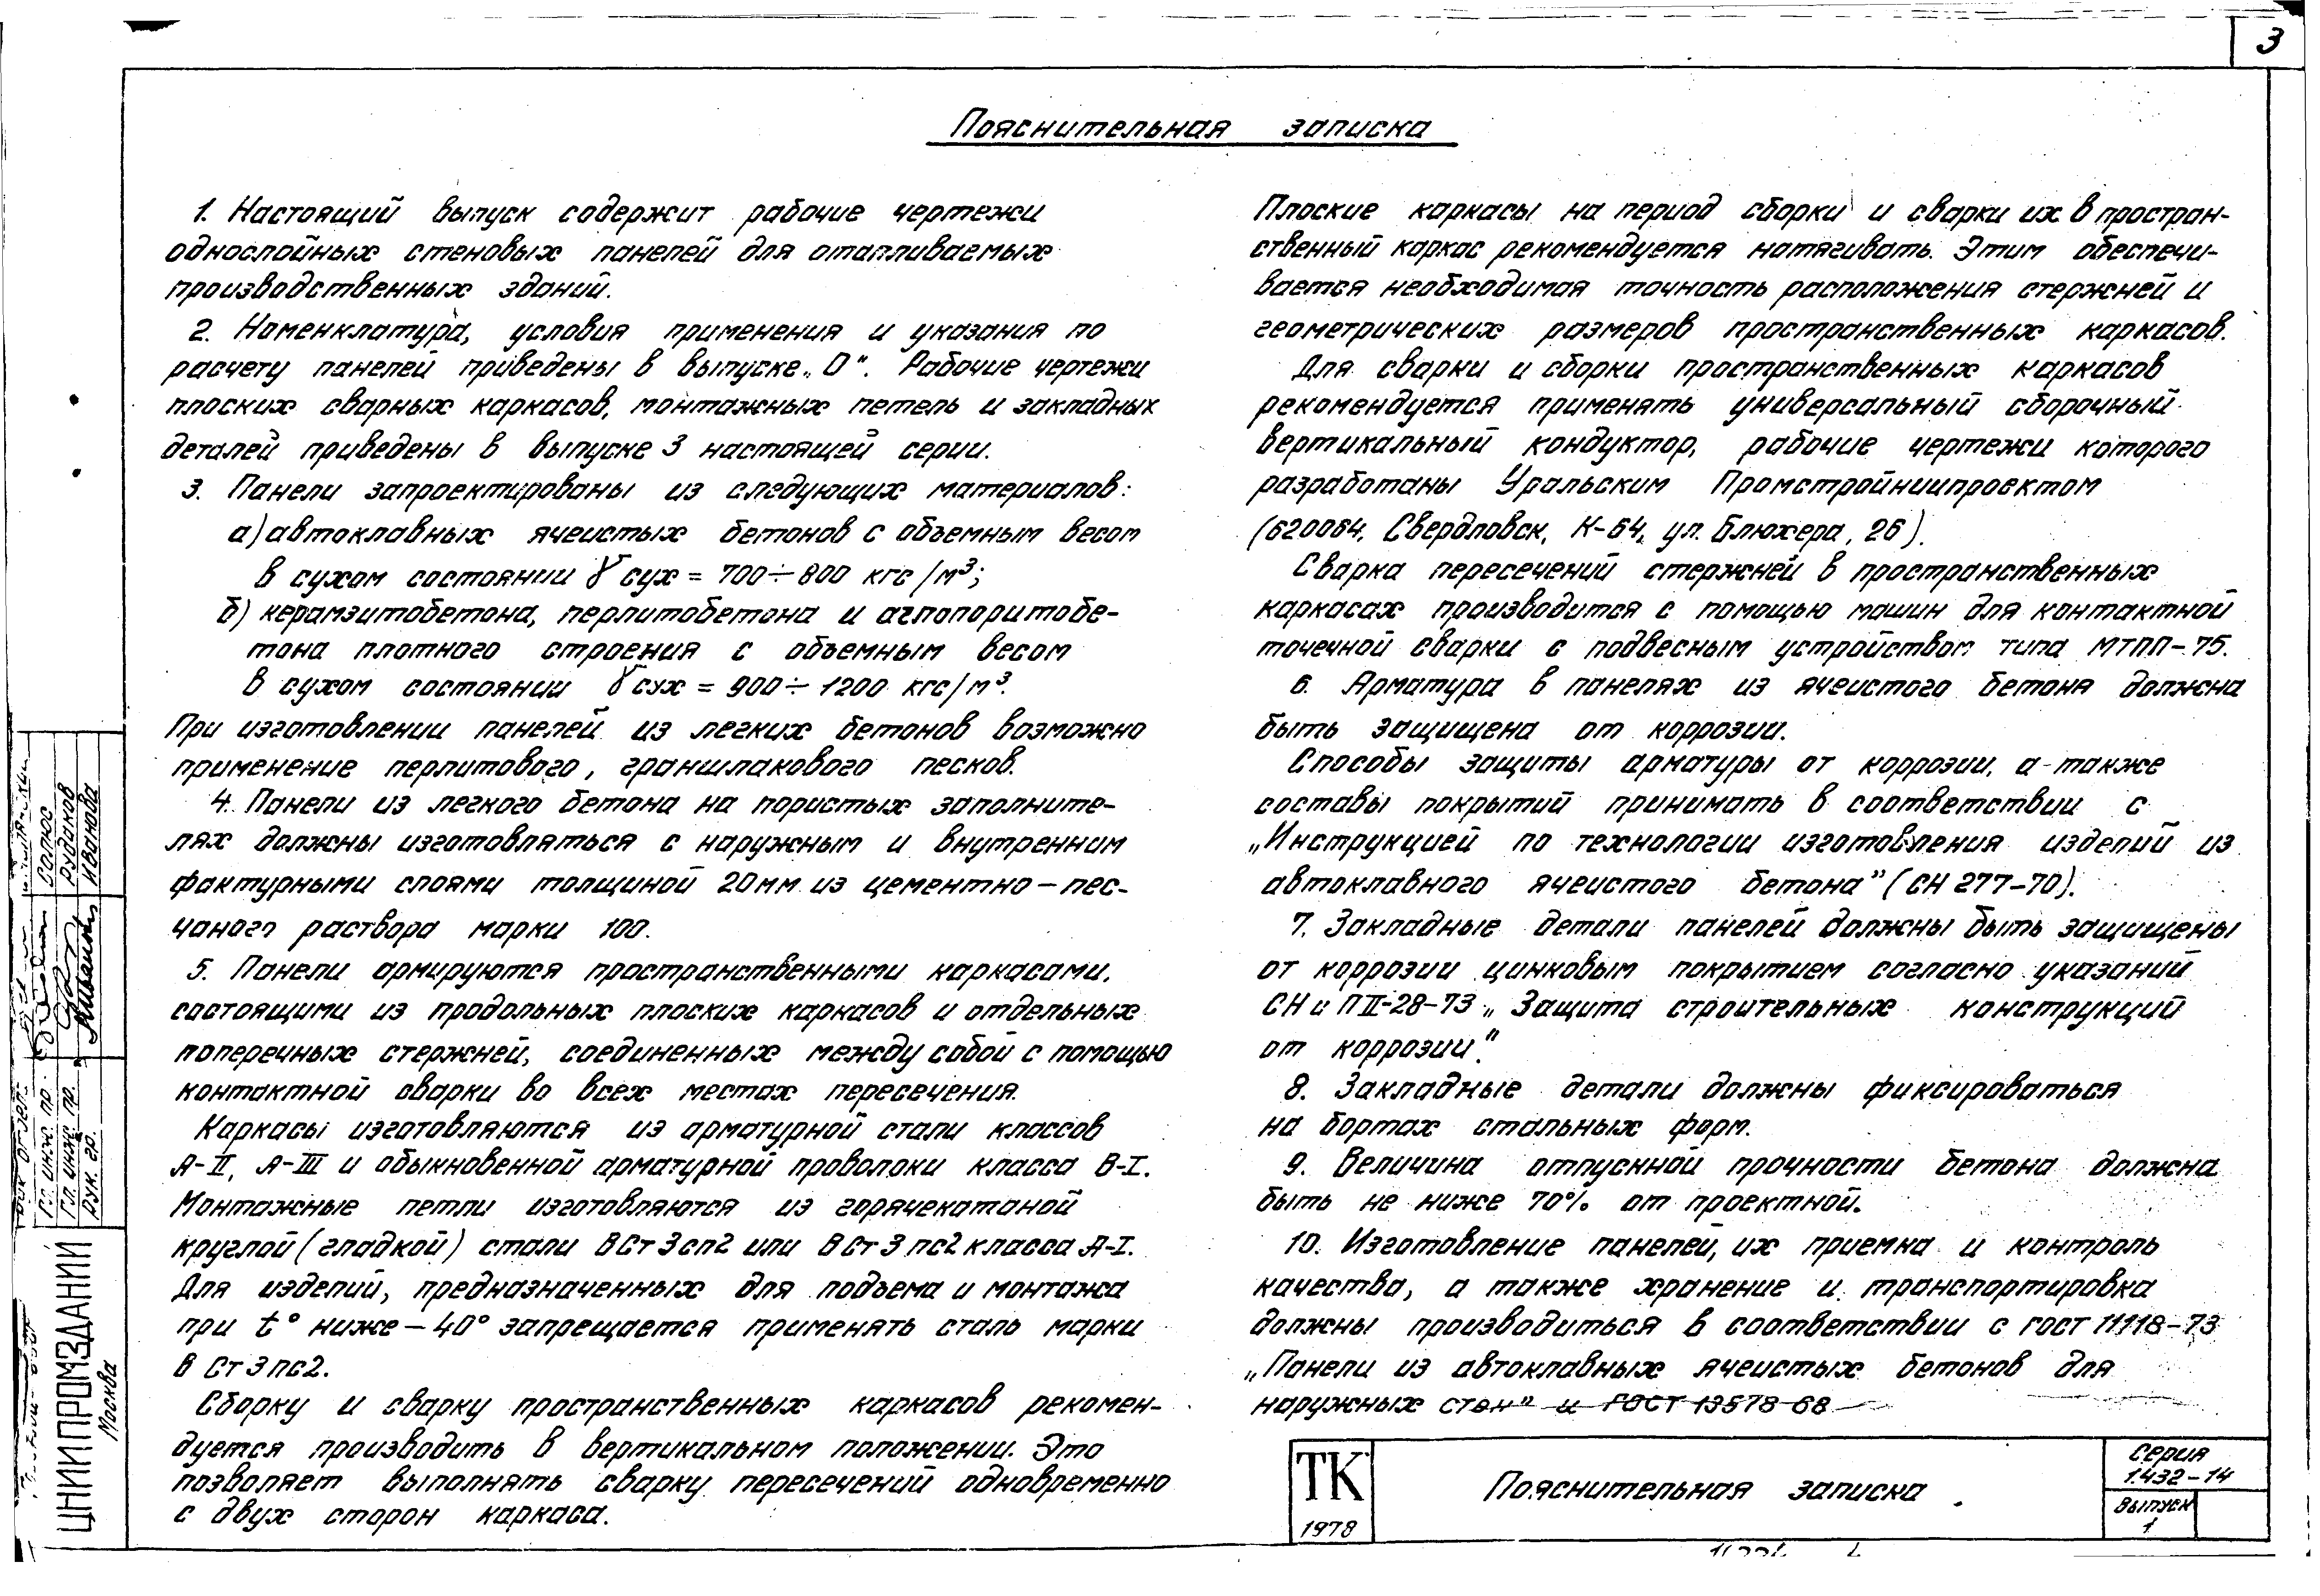 3
Пояснительная записка
1. Настоящий выпуск содержит рабочие чертежи
однослойных стеновых панелей для отапливаемых
производственных зданий.
2. Номенклатура, условия применения и указания по
расчету панелей приведены в выпуске „О". Рабочие чертежи
плоских сварных каркасов, монтажных петель и закладных
деталей приведены в выпуске 3 настоящей серии.
3. Панели запроектированы из следующих материалов:
а) автоклавных ячеистых бетонов с объемным весом
в сухом состоянии γ сух = 700÷800 кгс/м³;
б) керамзитобетона, перлитобетона и аглопоритобе-
тона плотного строения с объемным весом
в сухом состоянии γ сух = 900÷1200 кгс/м³.
При изготовлении панелей из легких бетонов возможно
применение перлитового, граншлакового песков.
4. Панели из легкого бетона на пористых заполните-
лях должны изготовляться с наружным и внутренним
фактурными слоями толщиной 20мм из цементно-пес-
чаного раствора марки 100.
5. Панели армируются пространственными каркасами,
состоящими из продольных плоских каркасов и отдельных
поперечных стержней, соединенных между собой с помощью
контактной сварки во всех местах пересечения.
Каркасы изготовляются из арматурной стали классов
А-II, А-III и обыкновенной арматурной проволоки класса В-I.
Монтажные петли изготовляются из горячекатаной
круглой (гладкой) стали ВСт3сп2 или ВСт3пс2 класса А-I.
Для изделий, предназначенных для подъема и монтажа
при t° ниже -40° запрещается применять сталь марки
ВСт3пс2.
Сборку и сварку пространственных каркасов рекомен-
дуется производить в вертикальном положении. Это
позволяет выполнять сварку пересечений одновременно
с двух сторон каркаса.
Плоские каркасы на период сборки и сварки их в простран-
ственный каркас рекомендуется натягивать. Этим обеспечи-
вается необходимая точность расположения стержней и
геометрических размеров пространственных каркасов.
Для сварки и сборки пространственных каркасов
рекомендуется применять универсальный сборочный
вертикальный кондуктор, рабочие чертежи которого
разработаны Уральским Промстройниипроектом
(620064, Свердловск, К-64, ул. Блюхера, 26).
Сварка пересечений стержней в пространственных
каркасах производится с помощью машин для контактной
точечной сварки с подвесным устройством типа МТПП-75.
6. Арматура в панелях из ячеистого бетона должна
быть защищена от коррозии.
Способы защиты арматуры от коррозии, а также
составы покрытий принимать в соответствии с
„Инструкцией по технологии изготовления изделий из
автоклавного ячеистого бетона" (СН 277-70).
7. Закладные детали панелей должны быть защищены
от коррозии цинковым покрытием согласно указаний
СНиП II-28-73 „Защита строительных конструкций
от коррозии".
8. Закладные детали должны фиксироваться
на бортах стальных форм.
9. Величина отпускной прочности бетона должна
быть не ниже 70% от проектной.
10. Изготовление панелей, их приемка и контроль
качества, а также хранение и транспортировка
должны производиться в соответствии с ГОСТ 11118-73
„Панели из автоклавных ячеистых бетонов для
наружных стен" и ГОСТ 13578-68
ТК
1978
Пояснительная записка
Серия
1.432-14
Выпуск
1
Гл. инж. пр.
Гл. инж. пр.
Рук. гр.
Рудаков
Иванова
ЦНИИПРОМЗДАНИЙ
Москва